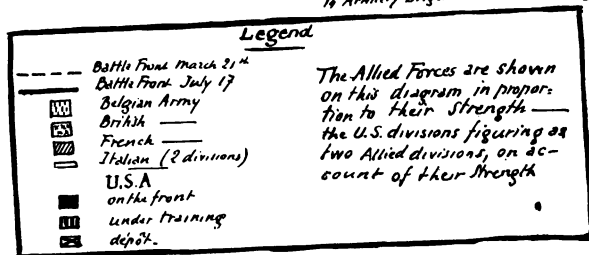 14 Artillery
Legend
Battle Front March 21st
Battle Front July 17
Belgian Army
British ——
French ——
Italian (2 divisions)
U.S.A
on the front
under training
dépôt.
The Allied Forces are shown
on this diagram in propor:
tion to their Strength ——
the U.S. divisions figuring as
two Allied divisions, on ac-
count of their Strength